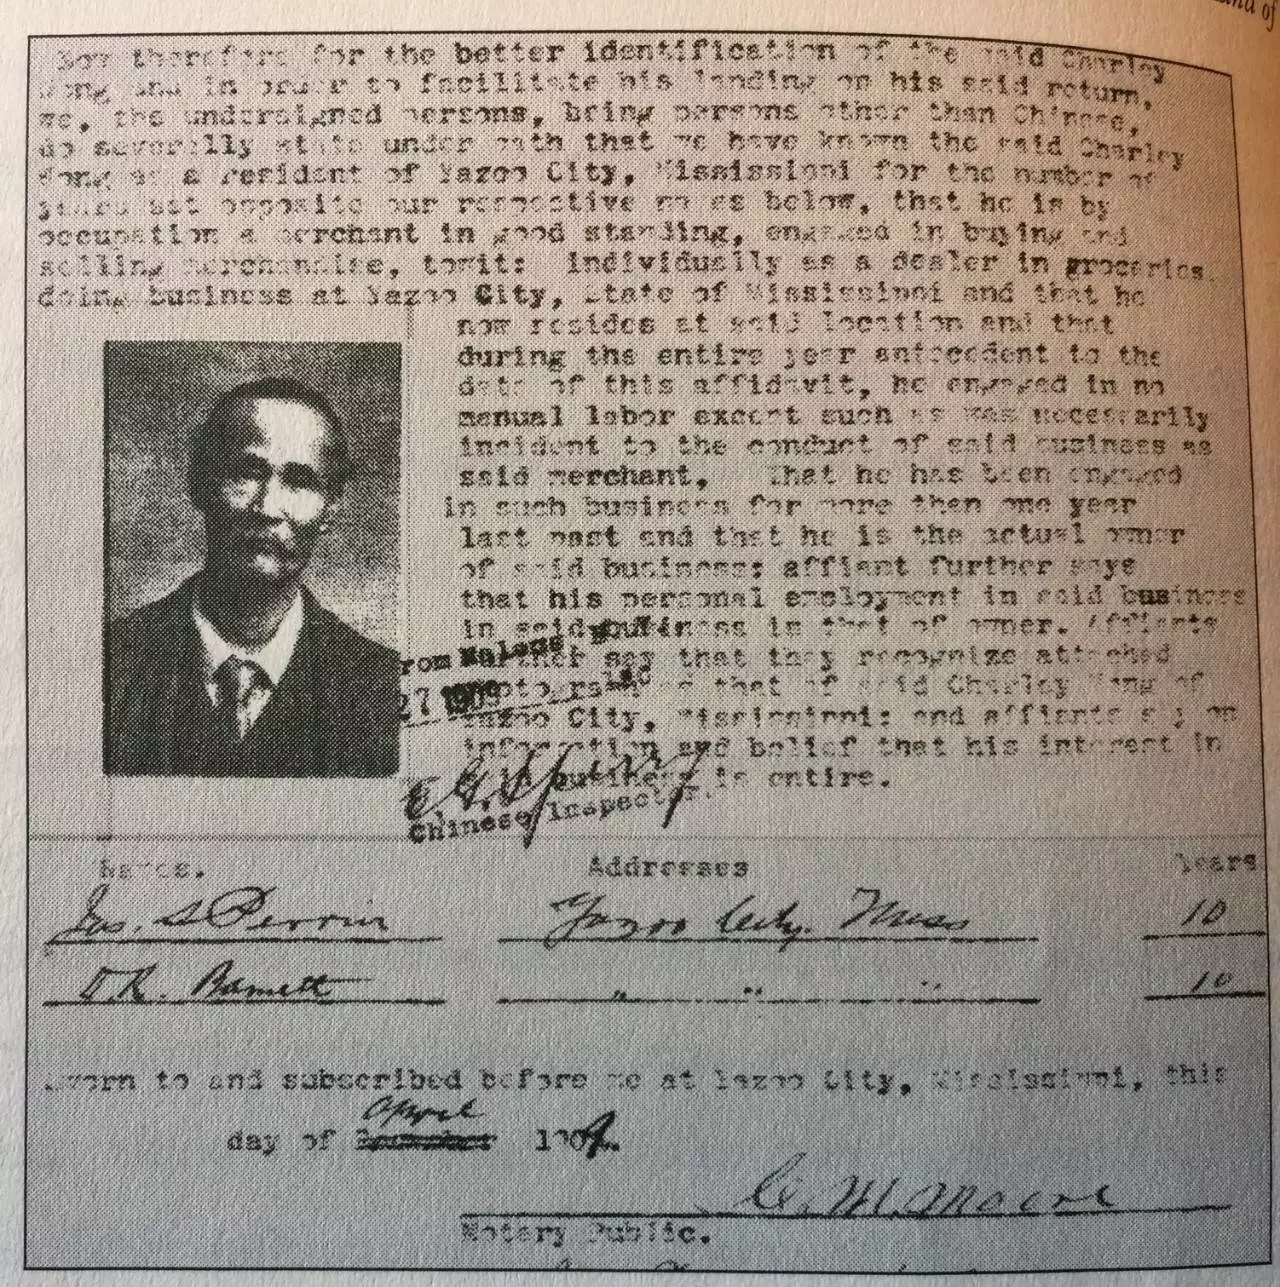 and of
Now therefore for the better identification of the said Charley
Wong and in order to facilitate his landing on his said return,
we, the undersigned persons, being persons other than Chinese,
do severally state under oath that we have known the said Charley
Wong as a resident of Yazoo City, Mississippi for the number of
years set opposite our respective names below, that he is by
occupation a merchant in good standing, engaged in buying and
selling merchandise, towit: individually as a dealer in groceries,
doing business at Yazoo City, State of Mississippi and that he
now resides at said location and that
during the entire year antecedent to the
date of this affidavit, he engaged in no
manual labor except such as was necessarily
incident to the conduct of said business as
said merchant. That he has been engaged
in such business for more than one year
last past and that he is the actual owner
of said business; affiant further says
that his personal employment in said business
in said business is that of owner. Affiants
further say that they recognize attached
photo as that of said Charley Wong of
Yazoo City, Mississippi; and affiants say on
information and belief that his interest in
business is entire.
rom Malone
27 1909
Chinese Inspector.
Names. Addresses Years
Jas. Perrin Yazoo City. Miss 10
D.R. Barnett " " " 10
Sworn to and subscribed before me at Yazoo City, Mississippi, this
April
day of 1909.
C. M. Moore
Notary Public.